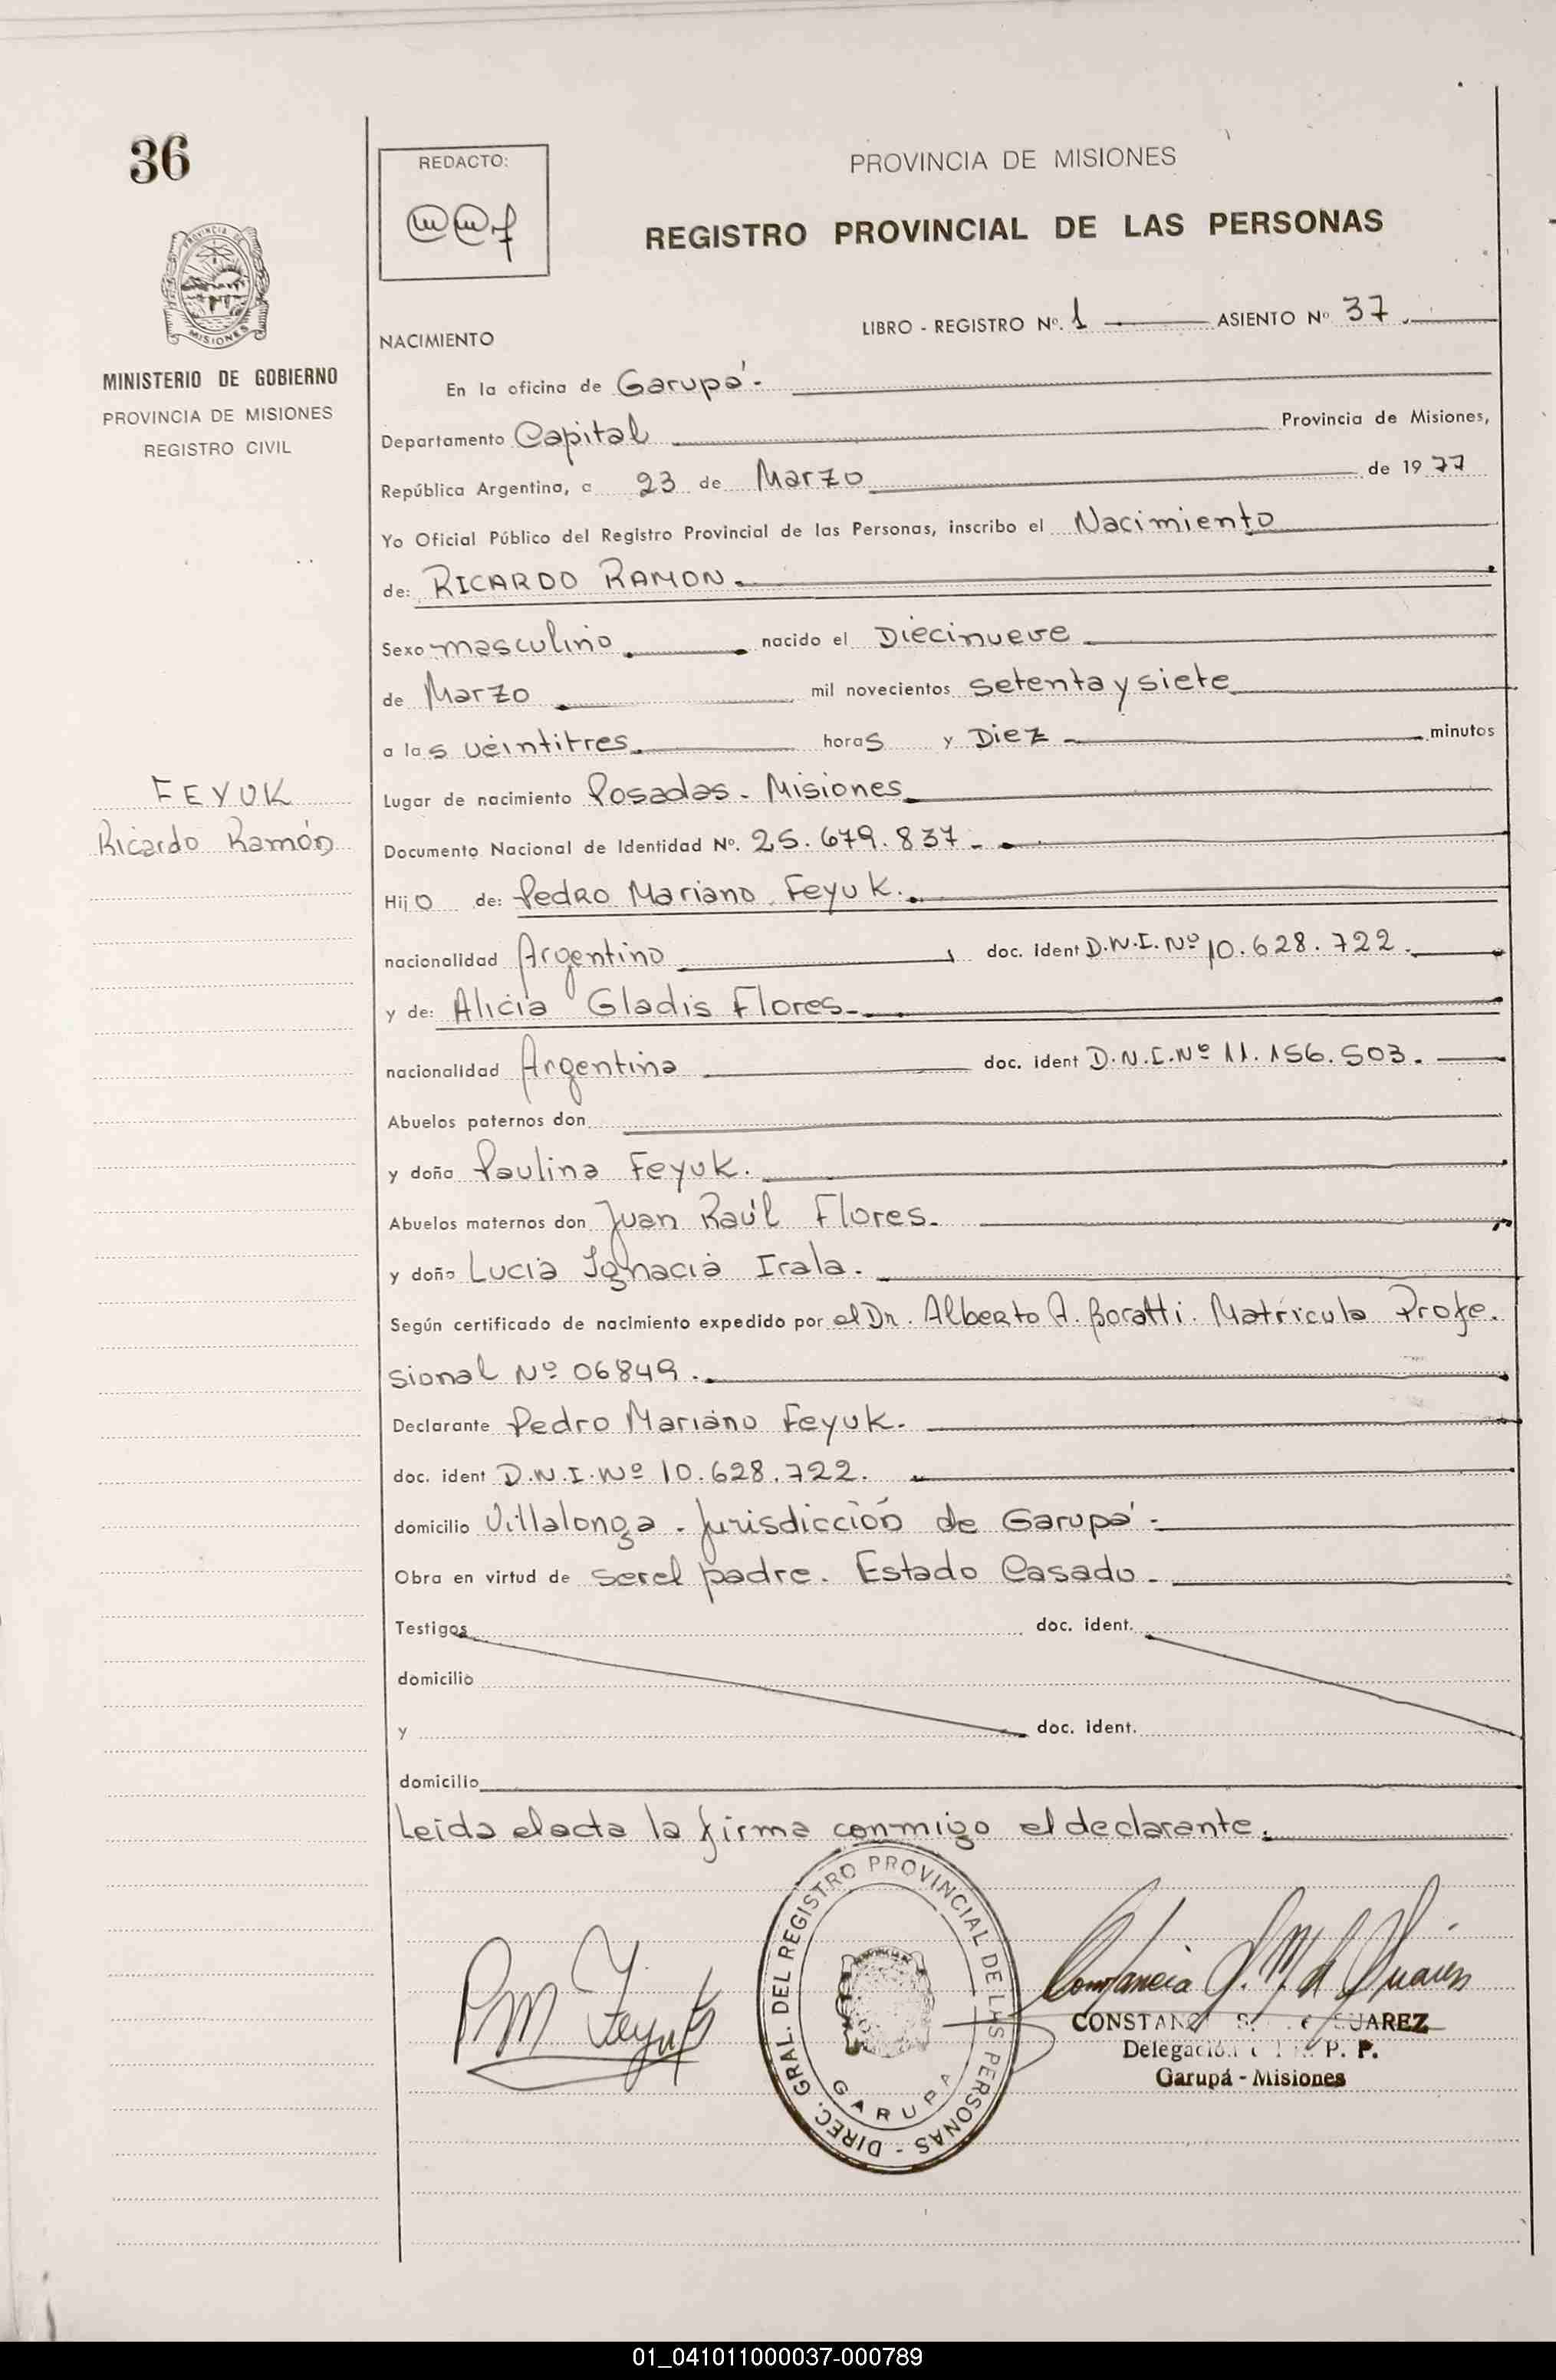 36
REDACTO:
PROVINCIA DE MISIONES
REGISTRO PROVINCIAL DE LAS PERSONAS
LIBRO - REGISTRO Nº. 1 ASIENTO Nº 37.
PROVINCIA DE
MISIONES
MINISTERIO DE GOBIERNO
PROVINCIA DE MISIONES
REGISTRO CIVIL
FEYUK
Ricardo Ramón
NACIMIENTO
En la oficina de Garupá.-
Departamento Capital Provincia de Misiones,
República Argentina, a 23 de Marzo de 1977
Yo Oficial Público del Registro Provincial de las Personas, inscribo el Nacimiento
de: RICARDO RAMON.
Sexo masculino. nacido el Diecinueve
de Marzo mil novecientos setenta y siete
a las veintitres. horas y Diez minutos
Lugar de nacimiento Posadas - Misiones.
Documento Nacional de Identidad Nº. 25.679.837.-
Hijo de: Pedro Mariano Feyuk.
nacionalidad Argentino, doc. ident D.N.I. Nº 10.628.722.
y de: Alicia Gladis Flores.-
nacionalidad Argentina doc. ident D.N.I. Nº 11.156.503.
Abuelos paternos don
y doña Paulina Feyuk.
Abuelos maternos don Juan Raúl Flores.
y doña Lucia Ignacia Irala.
Según certificado de nacimiento expedido por el Dr. Alberto A. Boratti. Matricula Profe.
sional Nº 06849.
Declarante Pedro Mariano Feyuk.
doc. ident D.N.I. Nº 10.628.722.
domicilio Villalonga - Jurisdicción de Garupá.-
Obra en virtud de ser el padre. Estado Casado.
Testigos doc. ident.
domicilio
y doc. ident.
domicilio
Leida el acta la firma conmigo el declarante.
PM Feyuk
DIREC. GRAL. DEL REGISTRO PROVINCIAL DE LAS PERSONAS -
GARUPA
Constancia S. M. de Suárez
SUAREZ
Delegación P. P.
Garupá - Misiones
01_041011000037-000789